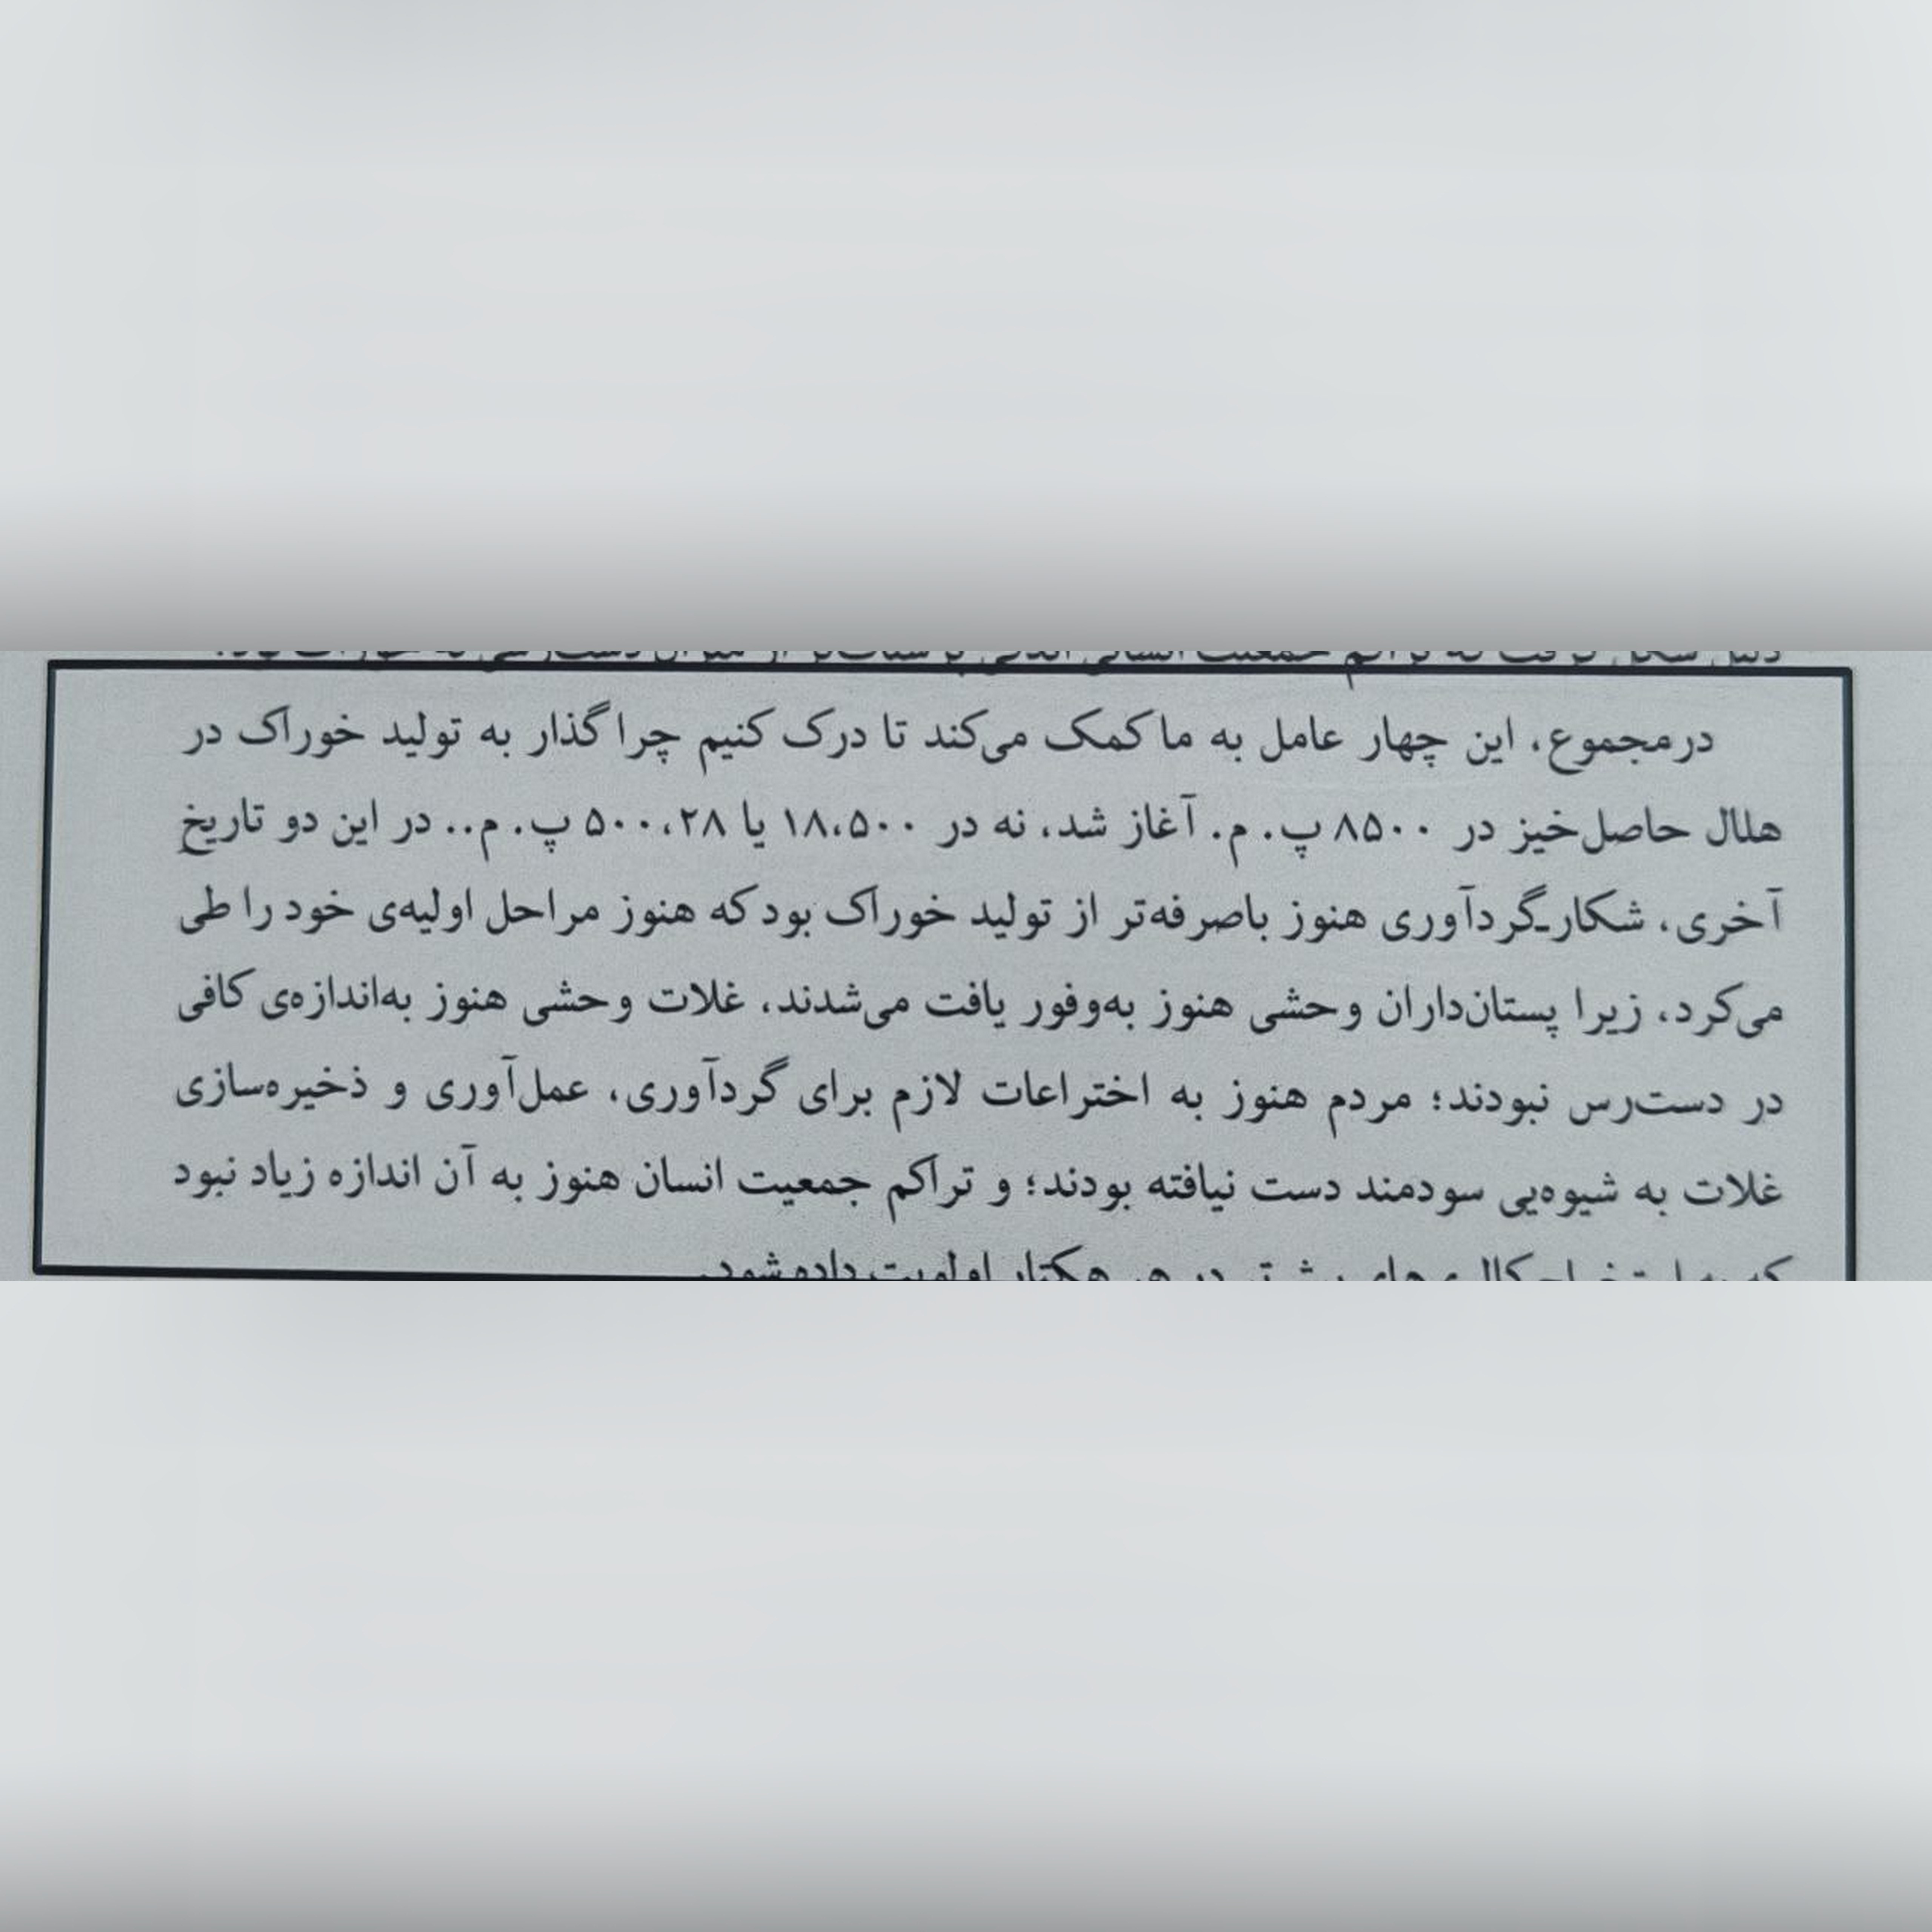 درمجموع، این چهار عامل به ما کمک می‌کند تا درک کنیم چرا گذار به تولید خوراک در
هلال حاصل‌خیز در ۸۵۰۰ پ. م. آغاز شد، نه در ۱۸،۵۰۰ یا ۵۰۰،۲۸ پ. م.. در این دو تاریخ
آخری، شکار‌ـ‌گردآوری هنوز باصرفه‌تر از تولید خوراک بود که هنوز مراحل اولیه‌ی خود را طی
می‌کرد، زیرا پستان‌داران وحشی هنوز به‌وفور یافت می‌شدند، غلات وحشی هنوز به‌اندازه‌ی کافی
در دست‌رس نبودند؛ مردم هنوز به اختراعات لازم برای گردآوری، عمل‌آوری و ذخیره‌سازی
غلات به شیوه‌یی سودمند دست نیافته بودند؛ و تراکم جمعیت انسان هنوز به آن اندازه زیاد نبود
که به استخراج کالری‌های بیش‌تر در هر هکتار اولویت داده شود.